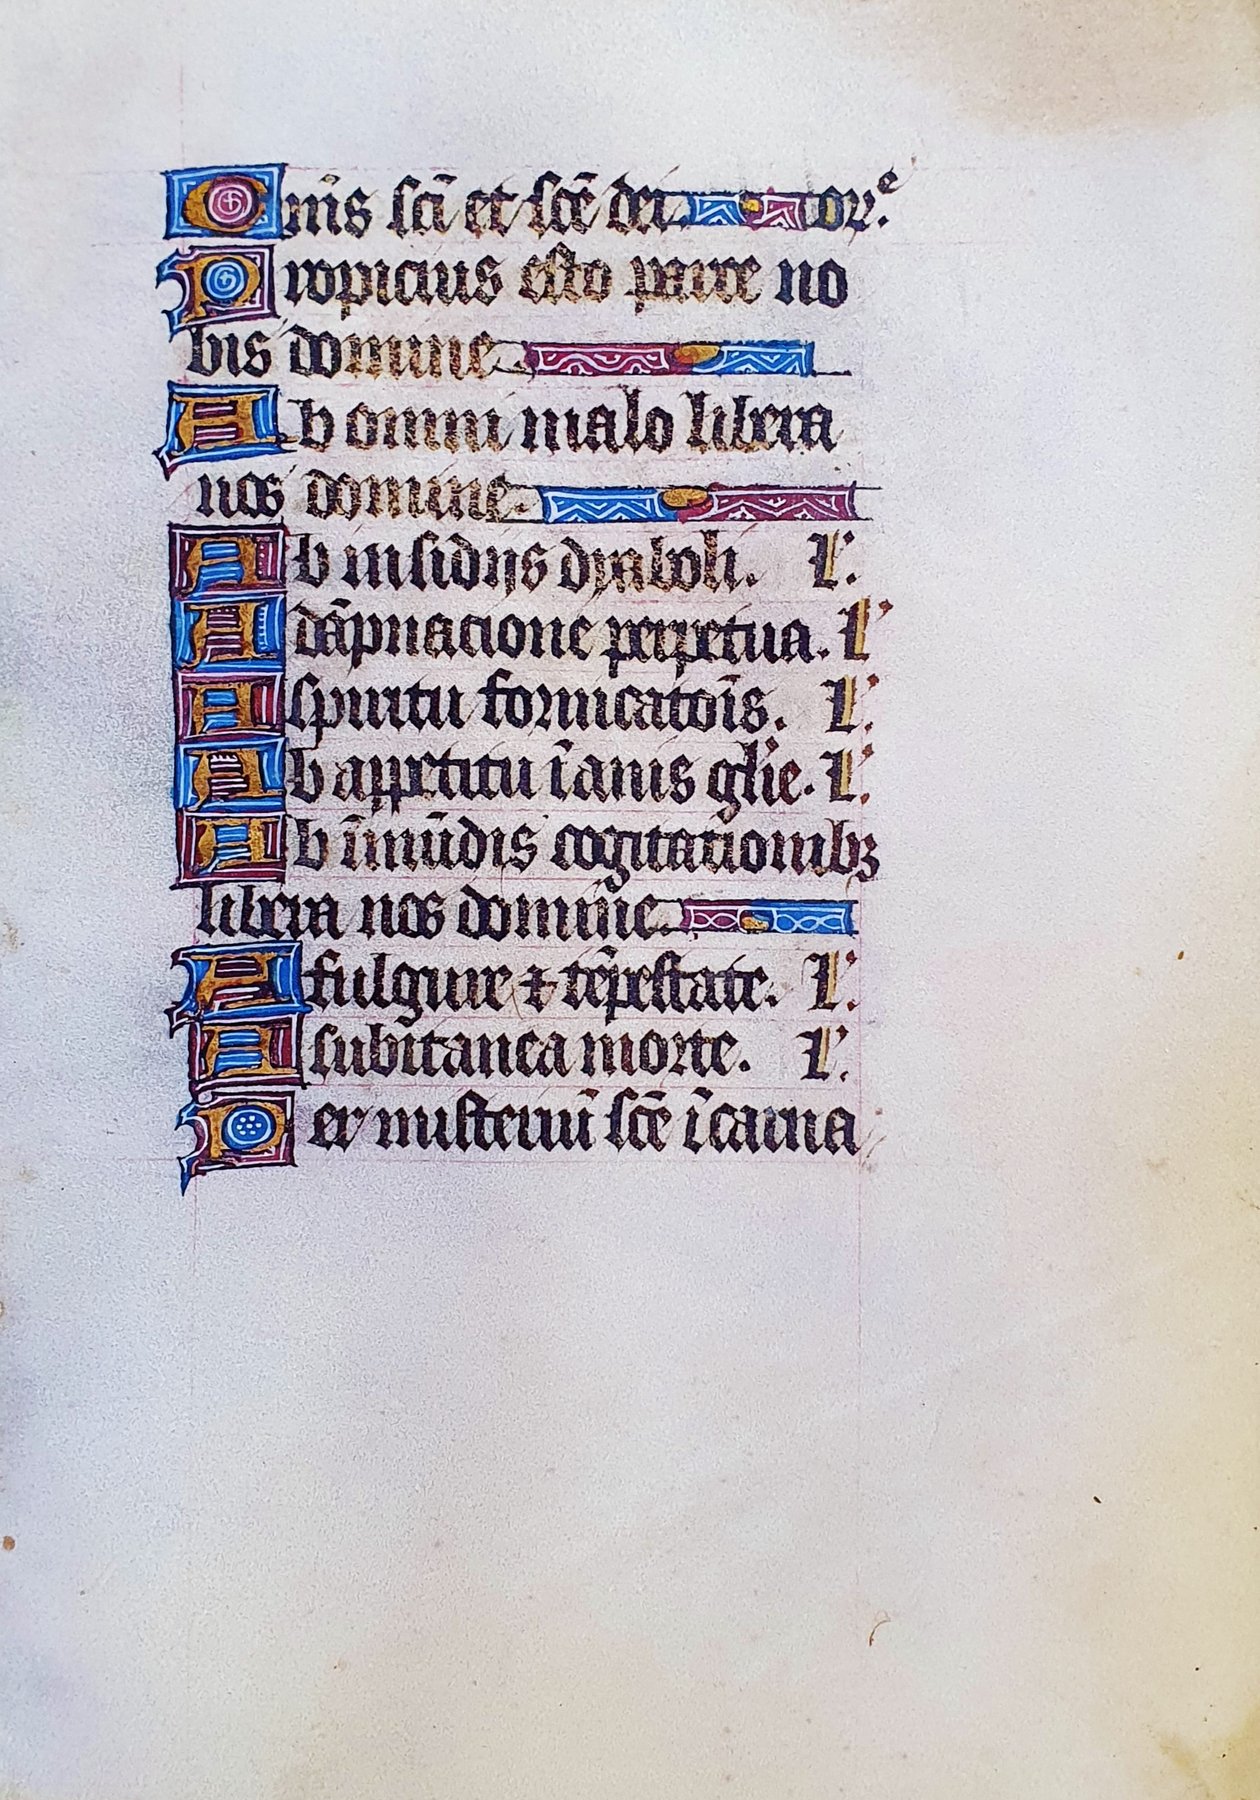 Om̄is scī et scē dei. or̉e.
Propicius esto parce no
bis domine
Ab omni malo libera
nos domine.
Ab insidijs dyaboli. L'.
A dāpnacione perpetua. L'
A spiritu fornicatōis. L'.
Ab appetitu īanis gl'ie. L'.
Ab īmūdis cogitationibꝫ
libera nos domine.
A fulgure ⁊ tēpestate. L'.
A subitanea morte. L'.
Per misteriū scē īcarna